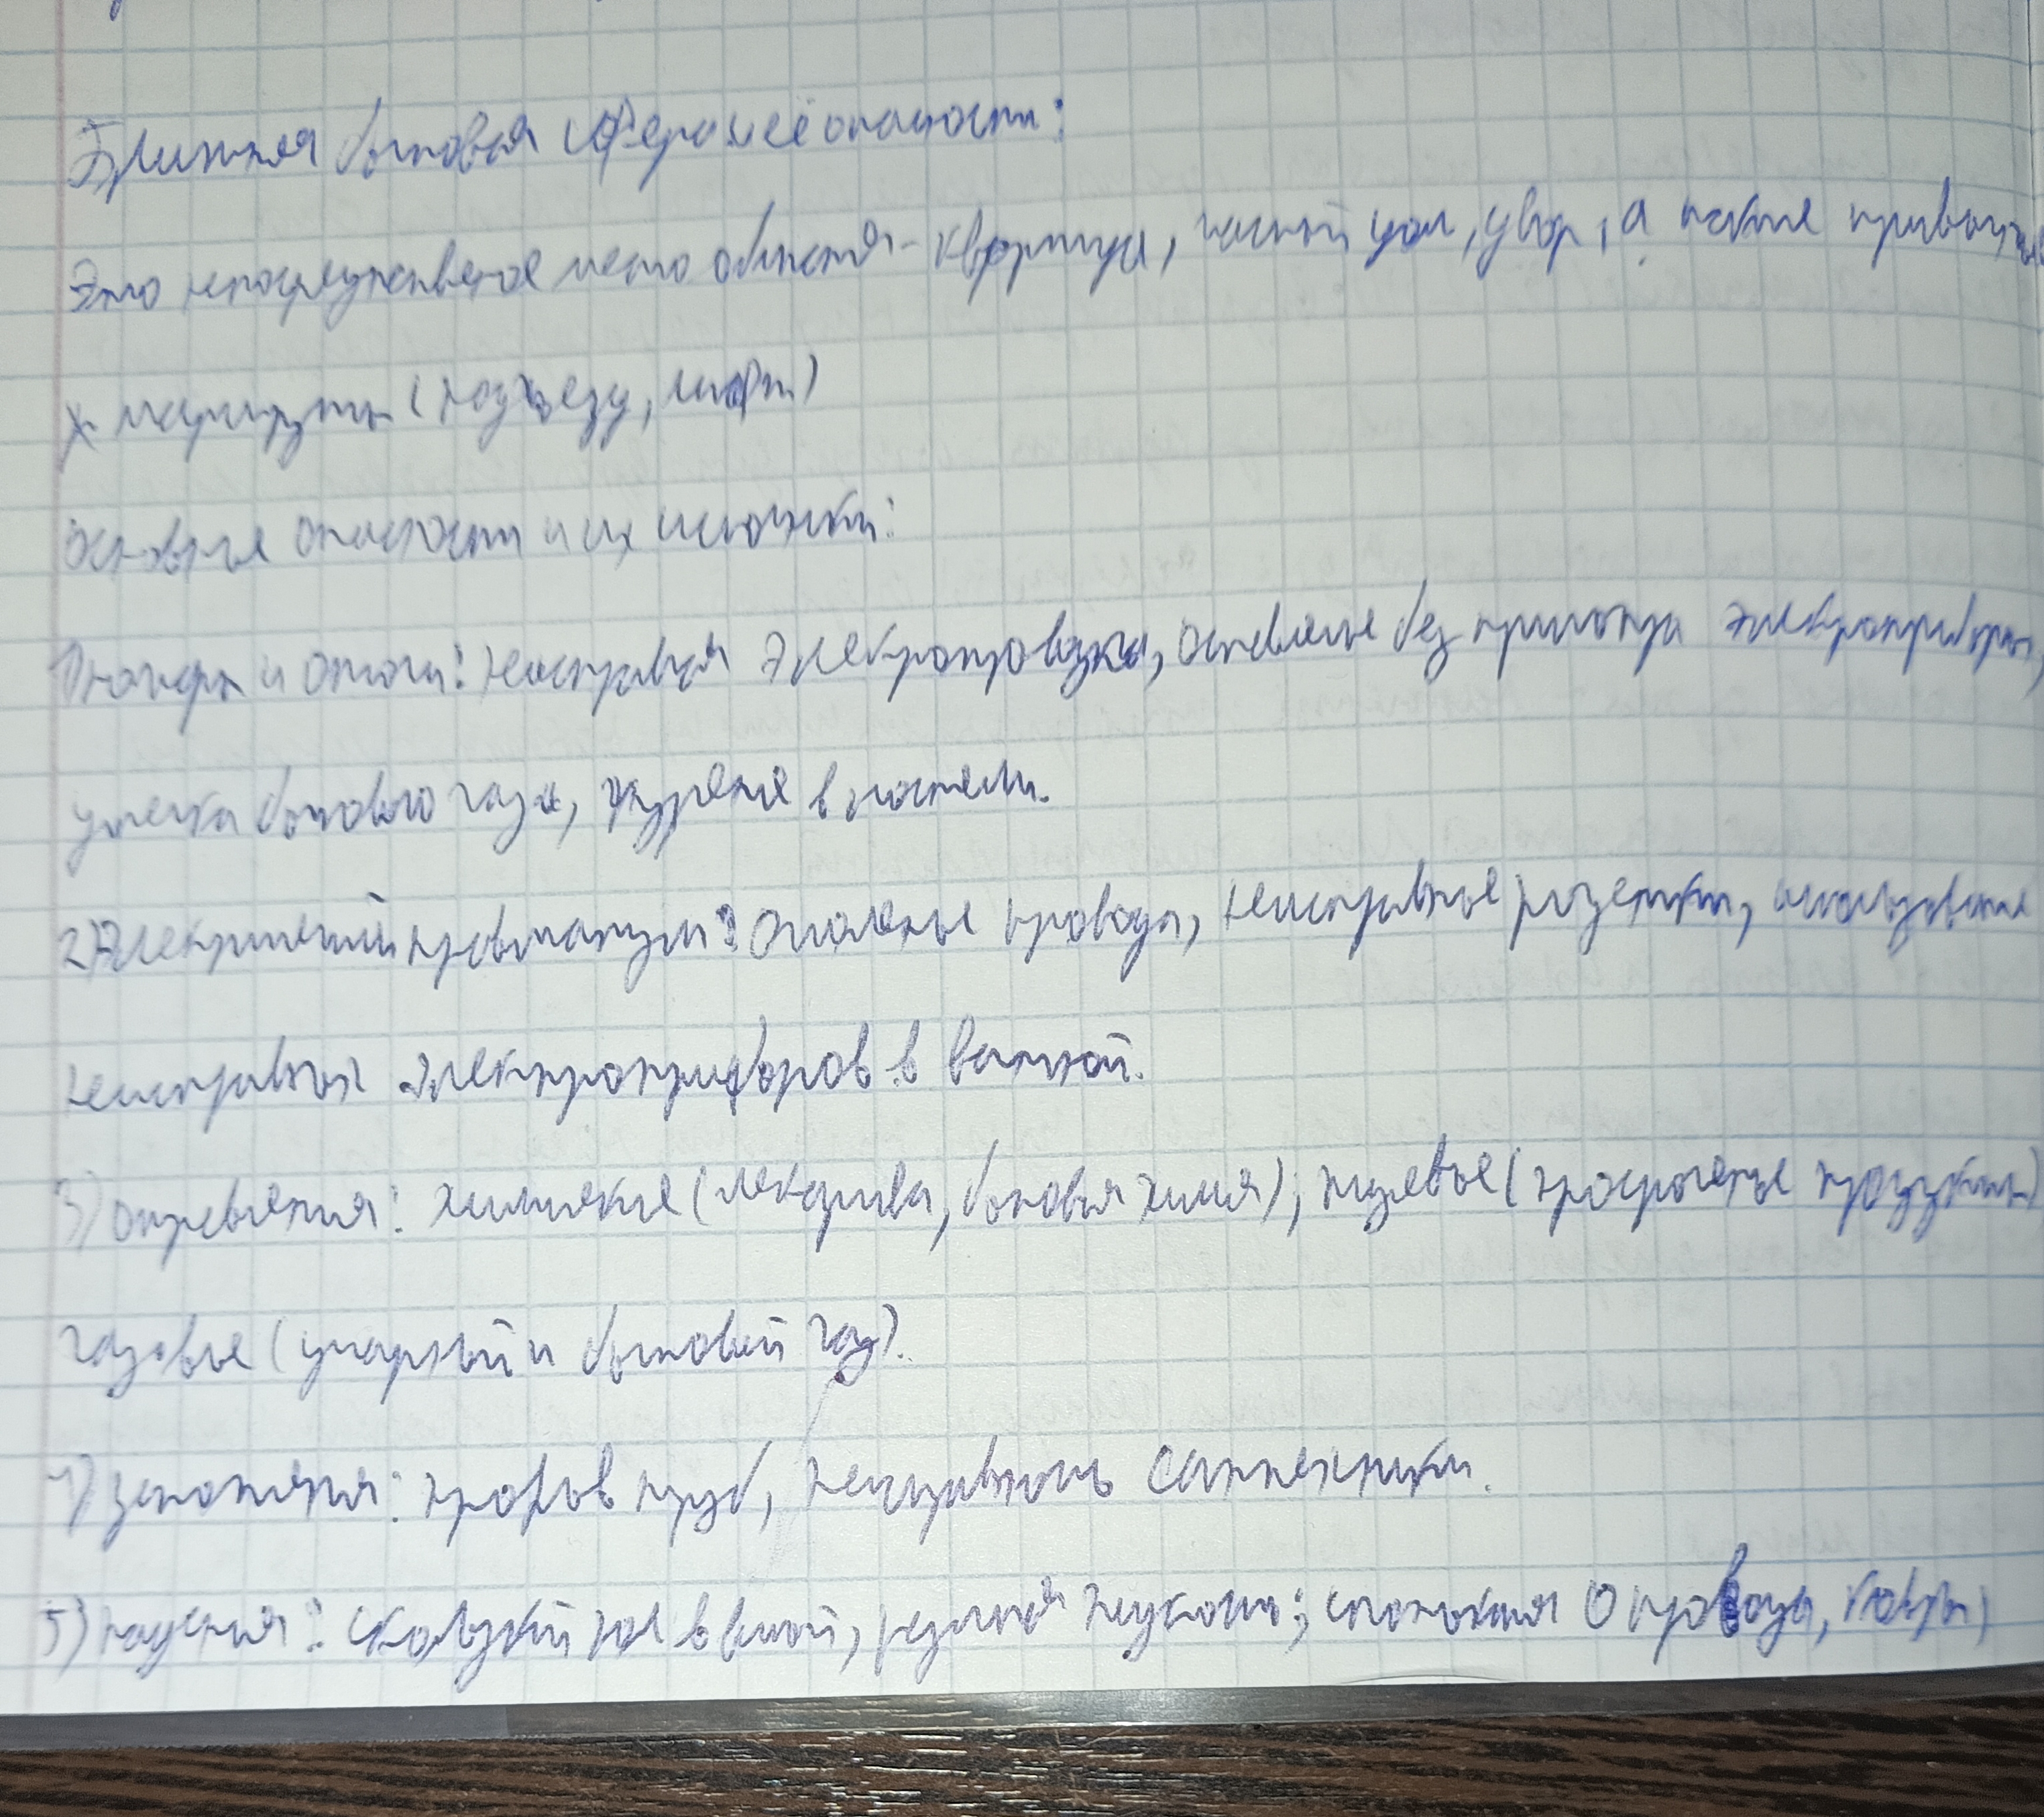 Ближняя бытовая сфера и её опасности:
Это непосредственное место обитания - квартира, частный дом, двор, а также привычны
х маршруты (подъезд, лифт)
Основные опасности и их источники:
1) пожары и ожоги: неисправная электропроводка, оставленные без присмотра электроприборы,
утечка бытового газа, курение в постели.
2) Электрический травматизм: оголенные провода, неисправные розетки, использование
неисправных электроприборов в ванной.
3) отравления: химические (лекарства, бытовая химия); пищевые (просроченные продукты)
газовые (угарный и бытовой газ).
4) затопления: прорыв труб, неисправность сантехники.
5) падения: скользкий пол в ванной, о провода, ковры,